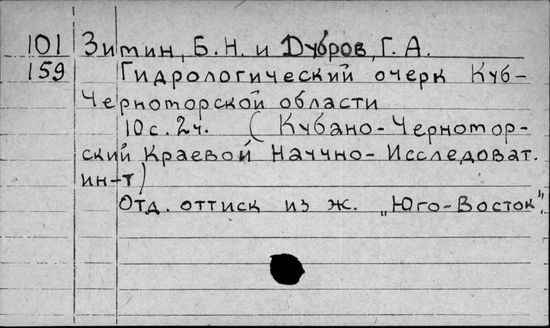 101 Зимин, Б. Н. и Дубров, Г. А.
159 Гидрологический очерк Куб-
Черноморской области
10 с. 2 ч. (Кубано-Черномор-
ский Краевой Научно-Исследоват.
ин-т)
Отд. оттиск из ж. „Юго-Восток"